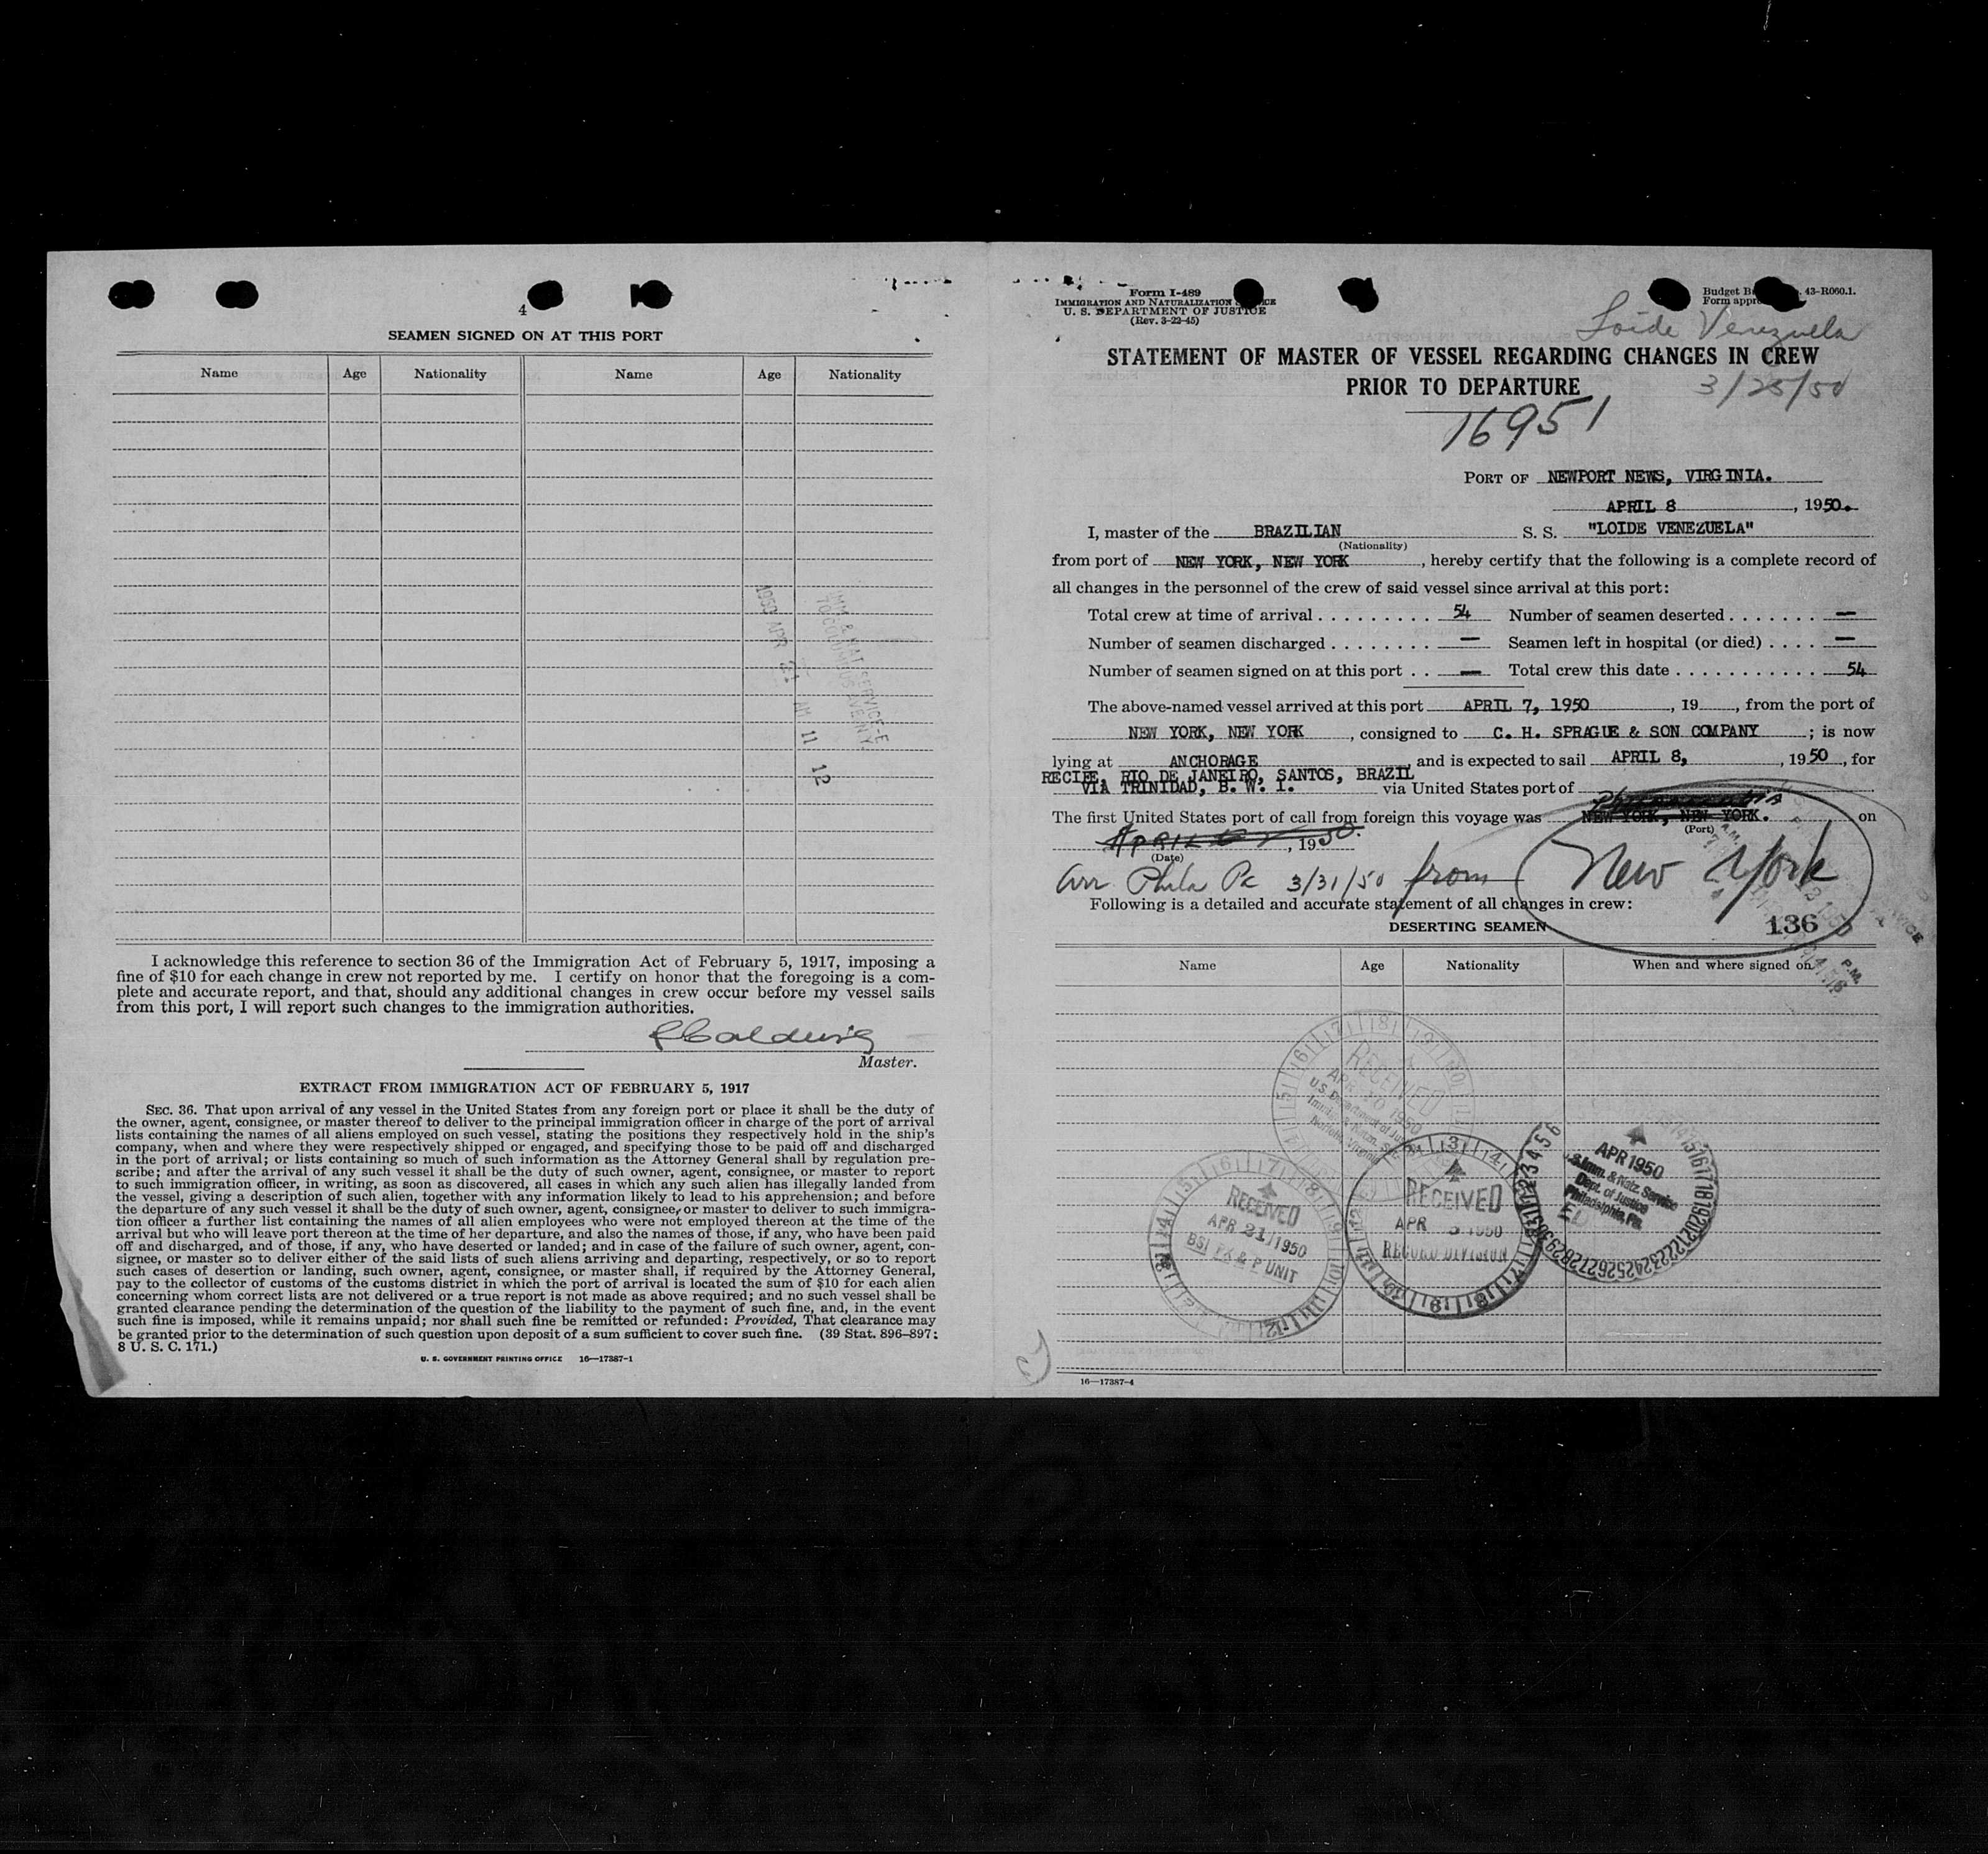 4
SEAMEN SIGNED ON AT THIS PORT
Name Age Nationality Name Age Nationality
1950 APR 21 AM 11 12
IMM & NAT SERVICE-E
70 COLUMBUS AVE N.Y.
I acknowledge this reference to section 36 of the Immigration Act of February 5, 1917, imposing a
fine of $10 for each change in crew not reported by me. I certify on honor that the foregoing is a com-
plete and accurate report, and that, should any additional changes in crew occur before my vessel sails
from this port, I will report such changes to the immigration authorities.
Master.
EXTRACT FROM IMMIGRATION ACT OF FEBRUARY 5, 1917
SEC. 36. That upon arrival of any vessel in the United States from any foreign port or place it shall be the duty of
the owner, agent, consignee, or master thereof to deliver to the principal immigration officer in charge of the port of arrival
lists containing the names of all aliens employed on such vessel, stating the positions they respectively hold in the ship's
company, when and where they were respectively shipped or engaged, and specifying those to be paid off and discharged
in the port of arrival; or lists containing so much of such information as the Attorney General shall by regulation pre-
scribe; and after the arrival of any such vessel it shall be the duty of such owner, agent, consignee, or master to report
to such immigration officer, in writing, as soon as discovered, all cases in which any such alien has illegally landed from
the vessel, giving a description of such alien, together with any information likely to lead to his apprehension; and before
the departure of any such vessel it shall be the duty of such owner, agent, consignee, or master to deliver to such immigra-
tion officer a further list containing the names of all alien employees who were not employed thereon at the time of the
arrival but who will leave port thereon at the time of her departure, and also the names of those, if any, who have been paid
off and discharged, and of those, if any, who have deserted or landed; and in case of the failure of such owner, agent, con-
signee, or master so to deliver either of the said lists of such aliens arriving and departing, respectively, or so to report
such cases of desertion or landing, such owner, agent, consignee, or master shall, if required by the Attorney General,
pay to the collector of customs of the customs district in which the port of arrival is located the sum of $10 for each alien
concerning whom correct lists are not delivered or a true report is not made as above required; and no such vessel shall be
granted clearance pending the determination of the question of the liability to the payment of such fine, and, in the event
such fine is imposed, while it remains unpaid; nor shall such fine be remitted or refunded: Provided, That clearance may
be granted prior to the determination of such question upon deposit of a sum sufficient to cover such fine. (39 Stat. 896–897;
8 U. S. C. 171.)
U. S. GOVERNMENT PRINTING OFFICE 16—17387-1
Form I-489
IMMIGRATION AND NATURALIZATION
U. S. DEPARTMENT OF JUSTICE
(Rev. 3-22-45)
Budget 43-R060.1.
Form
Loide Venezuela
STATEMENT OF MASTER OF VESSEL REGARDING CHANGES IN CREW
PRIOR TO DEPARTURE
3/25/50
16951
PORT OF NEWPORT NEWS, VIRGINIA.
APRIL 8, 1950.
I, master of the BRAZILIAN S. S. "LOIDE VENEZUELA"
(Nationality)
from port of NEW YORK, NEW YORK, hereby certify that the following is a complete record of
all changes in the personnel of the crew of said vessel since arrival at this port:
Total crew at time of arrival . . . . . . . . . 54 Number of seamen deserted . . . . . . . —
Number of seamen discharged . . . . . . . — Seamen left in hospital (or died) . . . . —
Number of seamen signed on at this port . . — Total crew this date . . . . . . . . . . . . 54
The above-named vessel arrived at this port APRIL 7, 1950, 19 , from the port of
NEW YORK, NEW YORK, consigned to C. H. SPRAGUE & SON COMPANY; is now
lying at ANCHORAGE, and is expected to sail APRIL 8, , 1950, for
RECIFE, RIO DE JANEIRO, SANTOS, BRAZIL
VIA TRINIDAD, B. W. I. via United States port of
The first United States port of call from foreign this voyage was NEW YORK, NEW YORK. on
(Port)
APRIL , 1950.
(Date)
Arr Phila Pa 3/31/50 from New York
Following is a detailed and accurate statement of all changes in crew:
DESERTING SEAMEN
136
Name Age Nationality When and where signed on
RECEIVED
APR 10 1950
U.S. Department of Justice
Norfolk, Virginia
RECEIVED
APR 21 1950
BSI EX & P UNIT
RECEIVED
APR 1950
RECORD DIVISION
APR 1950
Imm. & Natz Service
Dept. of Justice
Philadelphia, Pa.
16—17387-4